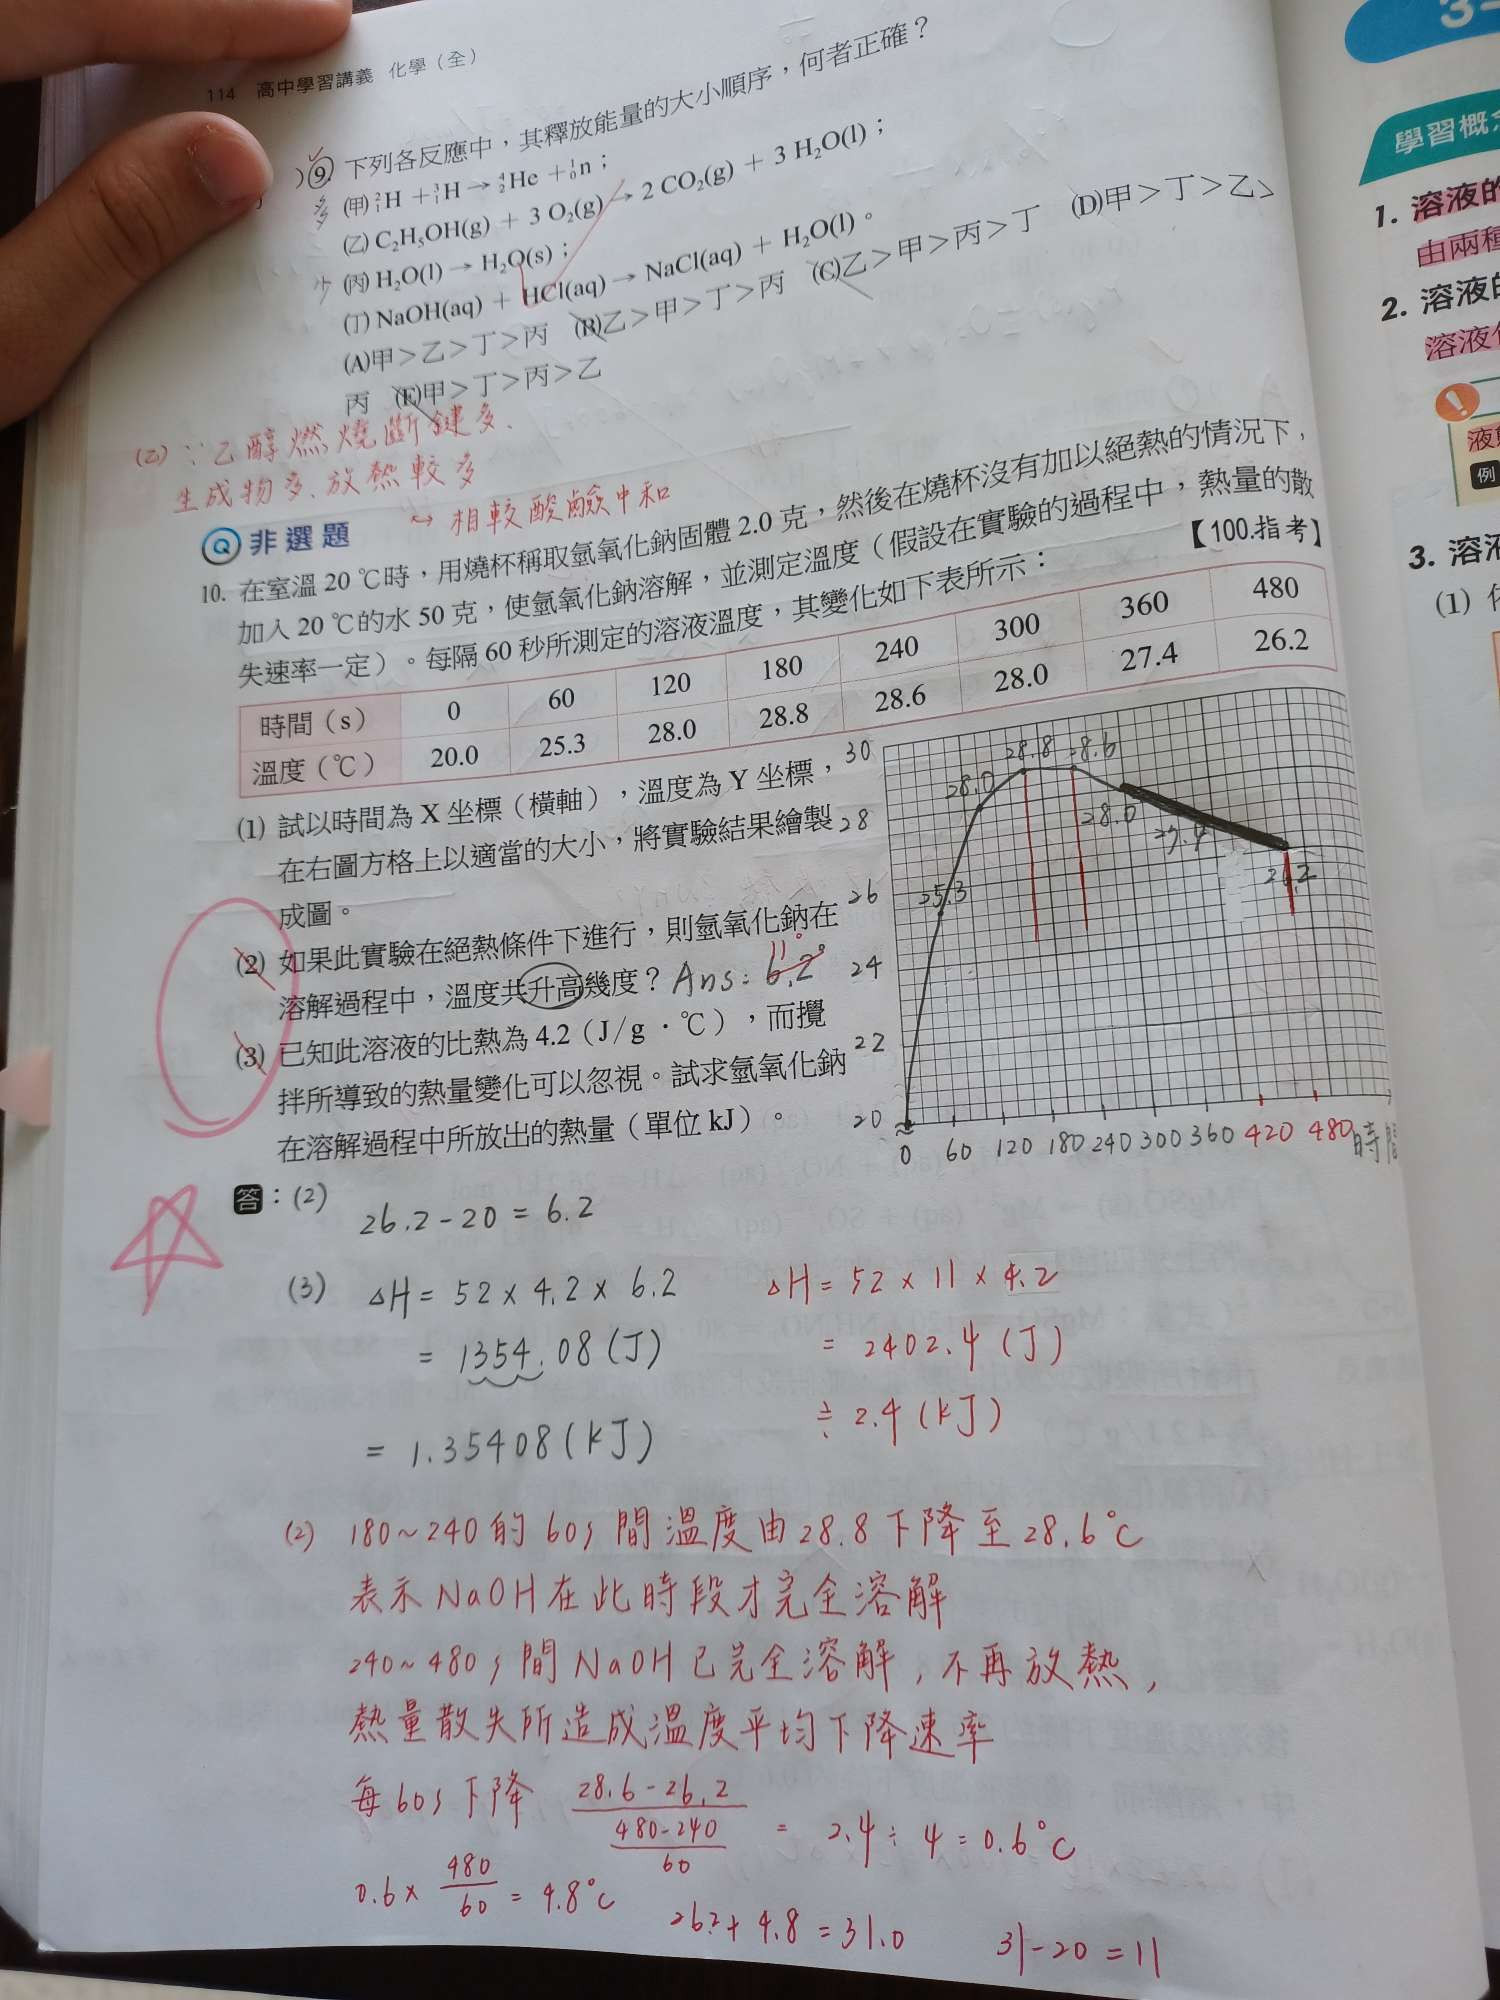 114 高中學習講義 化學（全）
9. 下列各反應中，其釋放能量的大小順序，何者正確？
多 (甲) ²₁H + ³₁H → ⁴₂He + ¹₀n；
(乙) C₂H₅OH(g) + 3 O₂(g) → 2 CO₂(g) + 3 H₂O(l)；
少 (丙) H₂O(l) → H₂O(s)；
(丁) NaOH(aq) + HCl(aq) → NaCl(aq) + H₂O(l)。
(A)甲＞乙＞丁＞丙 (B)乙＞甲＞丁＞丙 (C)乙＞甲＞丙＞丁 (D)甲＞丁＞乙＞
丙 (E)甲＞丁＞丙＞乙
(乙) ∵乙醇燃燒斷鍵多、
生成物多、放熱較多
↪ 相較酸鹼中和
Q 非選題
10. 在室溫 20 ℃時，用燒杯稱取氫氧化鈉固體 2.0 克，然後在燒杯沒有加以絕熱的情況下，
加入 20 ℃的水 50 克，使氫氧化鈉溶解，並測定溫度（假設在實驗的過程中，熱量的散
失速率一定）。每隔 60 秒所測定的溶液溫度，其變化如下表所示：
【100.指考】
時間（s） 0 60 120 180 240 300 360 480
溫度（℃） 20.0 25.3 28.0 28.8 28.6 28.0 27.4 26.2
(1) 試以時間為 X 坐標（橫軸），溫度為 Y 坐標，
在右圖方格上以適當的大小，將實驗結果繪製
成圖。
(2) 如果此實驗在絕熱條件下進行，則氫氧化鈉在
溶解過程中，溫度共升高幾度？ Ans: 6.2° 11°
(3) 已知此溶液的比熱為 4.2（J/g・℃），而攪
拌所導致的熱量變化可以忽視。試求氫氧化鈉
在溶解過程中所放出的熱量（單位 kJ）。
30
28
26
24
22
20
25.3
28.0
28.8
28.6
28.0
27.4
26.2
0 60 120 180 240 300 360 420 480 時間
答：(2)
26.2-20 = 6.2
(3) △H = 52 × 4.2 × 6.2
= 1354.08 (J)
= 1.35408 (kJ)
△H = 52 × 11 × 4.2
= 2402.4 (J)
≒ 2.4 (kJ)
(2) 180~240 的 60s 間溫度由 28.8 下降至 28.6°C
表示 NaOH 在此時段才完全溶解
240~480 s 間 NaOH 已完全溶解，不再放熱，
熱量散失所造成溫度平均下降速率
每 60s 下降 (28.6-26.2)/((480-240)/60) = 2.4÷4 = 0.6°C
0.6× 480/60 = 4.8°C
26.2+4.8 = 31.0
31-20 = 11
3-
學習概念
1. 溶液的
由兩種
2. 溶液的
例
3. 溶液
(1)